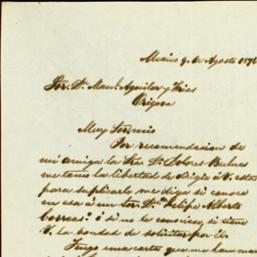 Mexico 9 de Agosto 1896
Sor. Dn. Manl. Aguilar y Frias
Orizava
Muy Sr. mio
Por recomendacion de
mi amiga la Sra. Da. Dolores
me tomo la libertad de dirigirme á V. esta
para suplicarle me diga si conoce
en esa á un Sor. Dn. Felipe Alberto
Correas? ó si no lo conociere, si tiene
V. la bondad de solicitar por él.
Tengo una carta que me han man